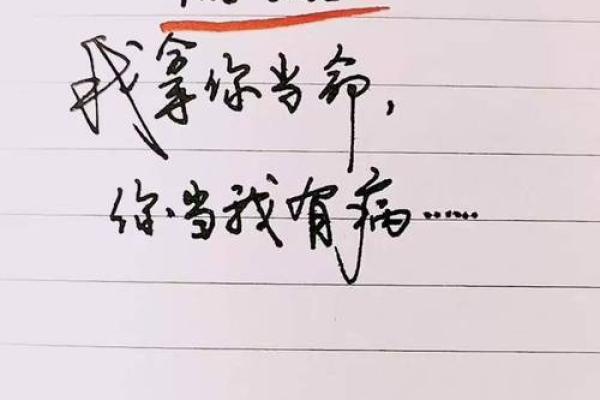 我拿你当命，
你当我有病……